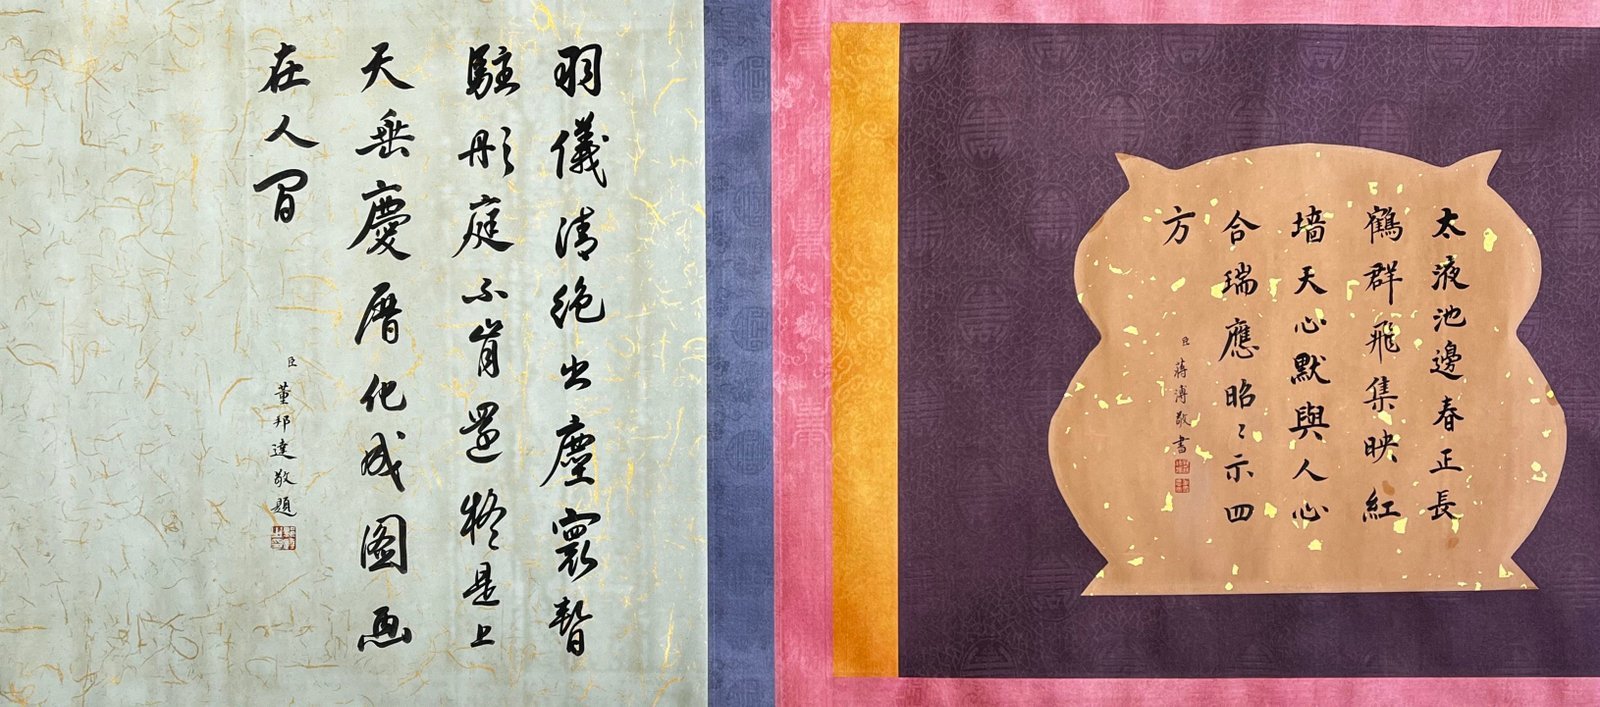 太液池邊春正長
鶴群飛集映紅
墻天心默與人心
合瑞應昭〻示四
方
臣蔣溥敬書
羽儀清絶出塵寰暫
駐彤庭不肯還疑是上
天垂慶曆化成圖画
在人間
臣董邦達敬題